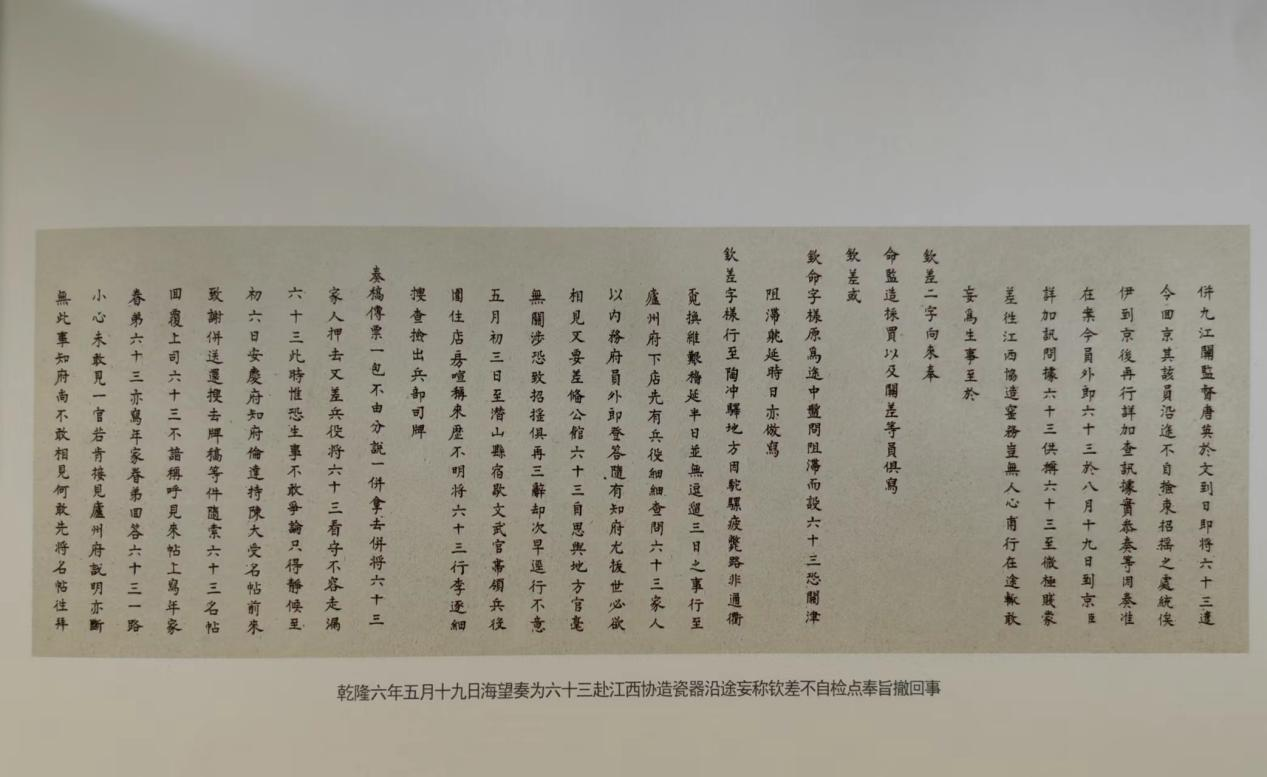 併九江關監督唐英於文到日即將六十三遣
令回京其該員沿途不自檢束招搖之處統俟
伊到京後再行詳加查訊據實叅奏等因奏准
在案今員外郎六十三於八月十九日到京臣
詳加訊問據六十三供稱六十三至微極賤蒙
差徃江西協造窰務豈無人心甫行在途輒敢
妄爲生事至於
欽差二字向來奉
命監造採買以及關差等員俱寫
欽差或
欽命字樣原爲途中盤問阻滯而設六十三恐關津
阻滯躭延時日亦倣寫
欽差字樣行至陶冲驛地方因駝騾疲斃路非通衢
覓換維艱稽延半日並無逗遛三日之事行至
廬州府下店先有兵役細細查問六十三家人
以内務府員外郎登答隨有知府尤拔世必欲
相見又要差條公館六十三自思與地方官毫
無關涉恐致招搖俱再三辭却次早遄行不意
五月初三日至潛山縣宿歇文武官帶領兵役
圍住店房喧稱來歷不明將六十三行李逐細
搜查撿出兵部司牌
奏稿傳票一包不由分說一併拿去併將六十三
家人押去又差兵役將六十三看守不容走漏
六十三此時惟恐生事不敢爭論只得靜候至
初六日安慶府知府倫達持陳大受名帖前來
致謝併送還搜去牌稿等件隨索六十三名帖
回覆上司六十三不諳稱呼見來帖上寫年家
眷弟六十三亦寫年家眷弟回答六十三一路
小心未敢見一官若肯接見廬州府說明亦斷
無此事知府尚不敢相見何敢先將名帖徃拜
乾隆六年五月十九日海望奏为六十三赴江西协造瓷器沿途妄称钦差不自检点奉旨撤回事